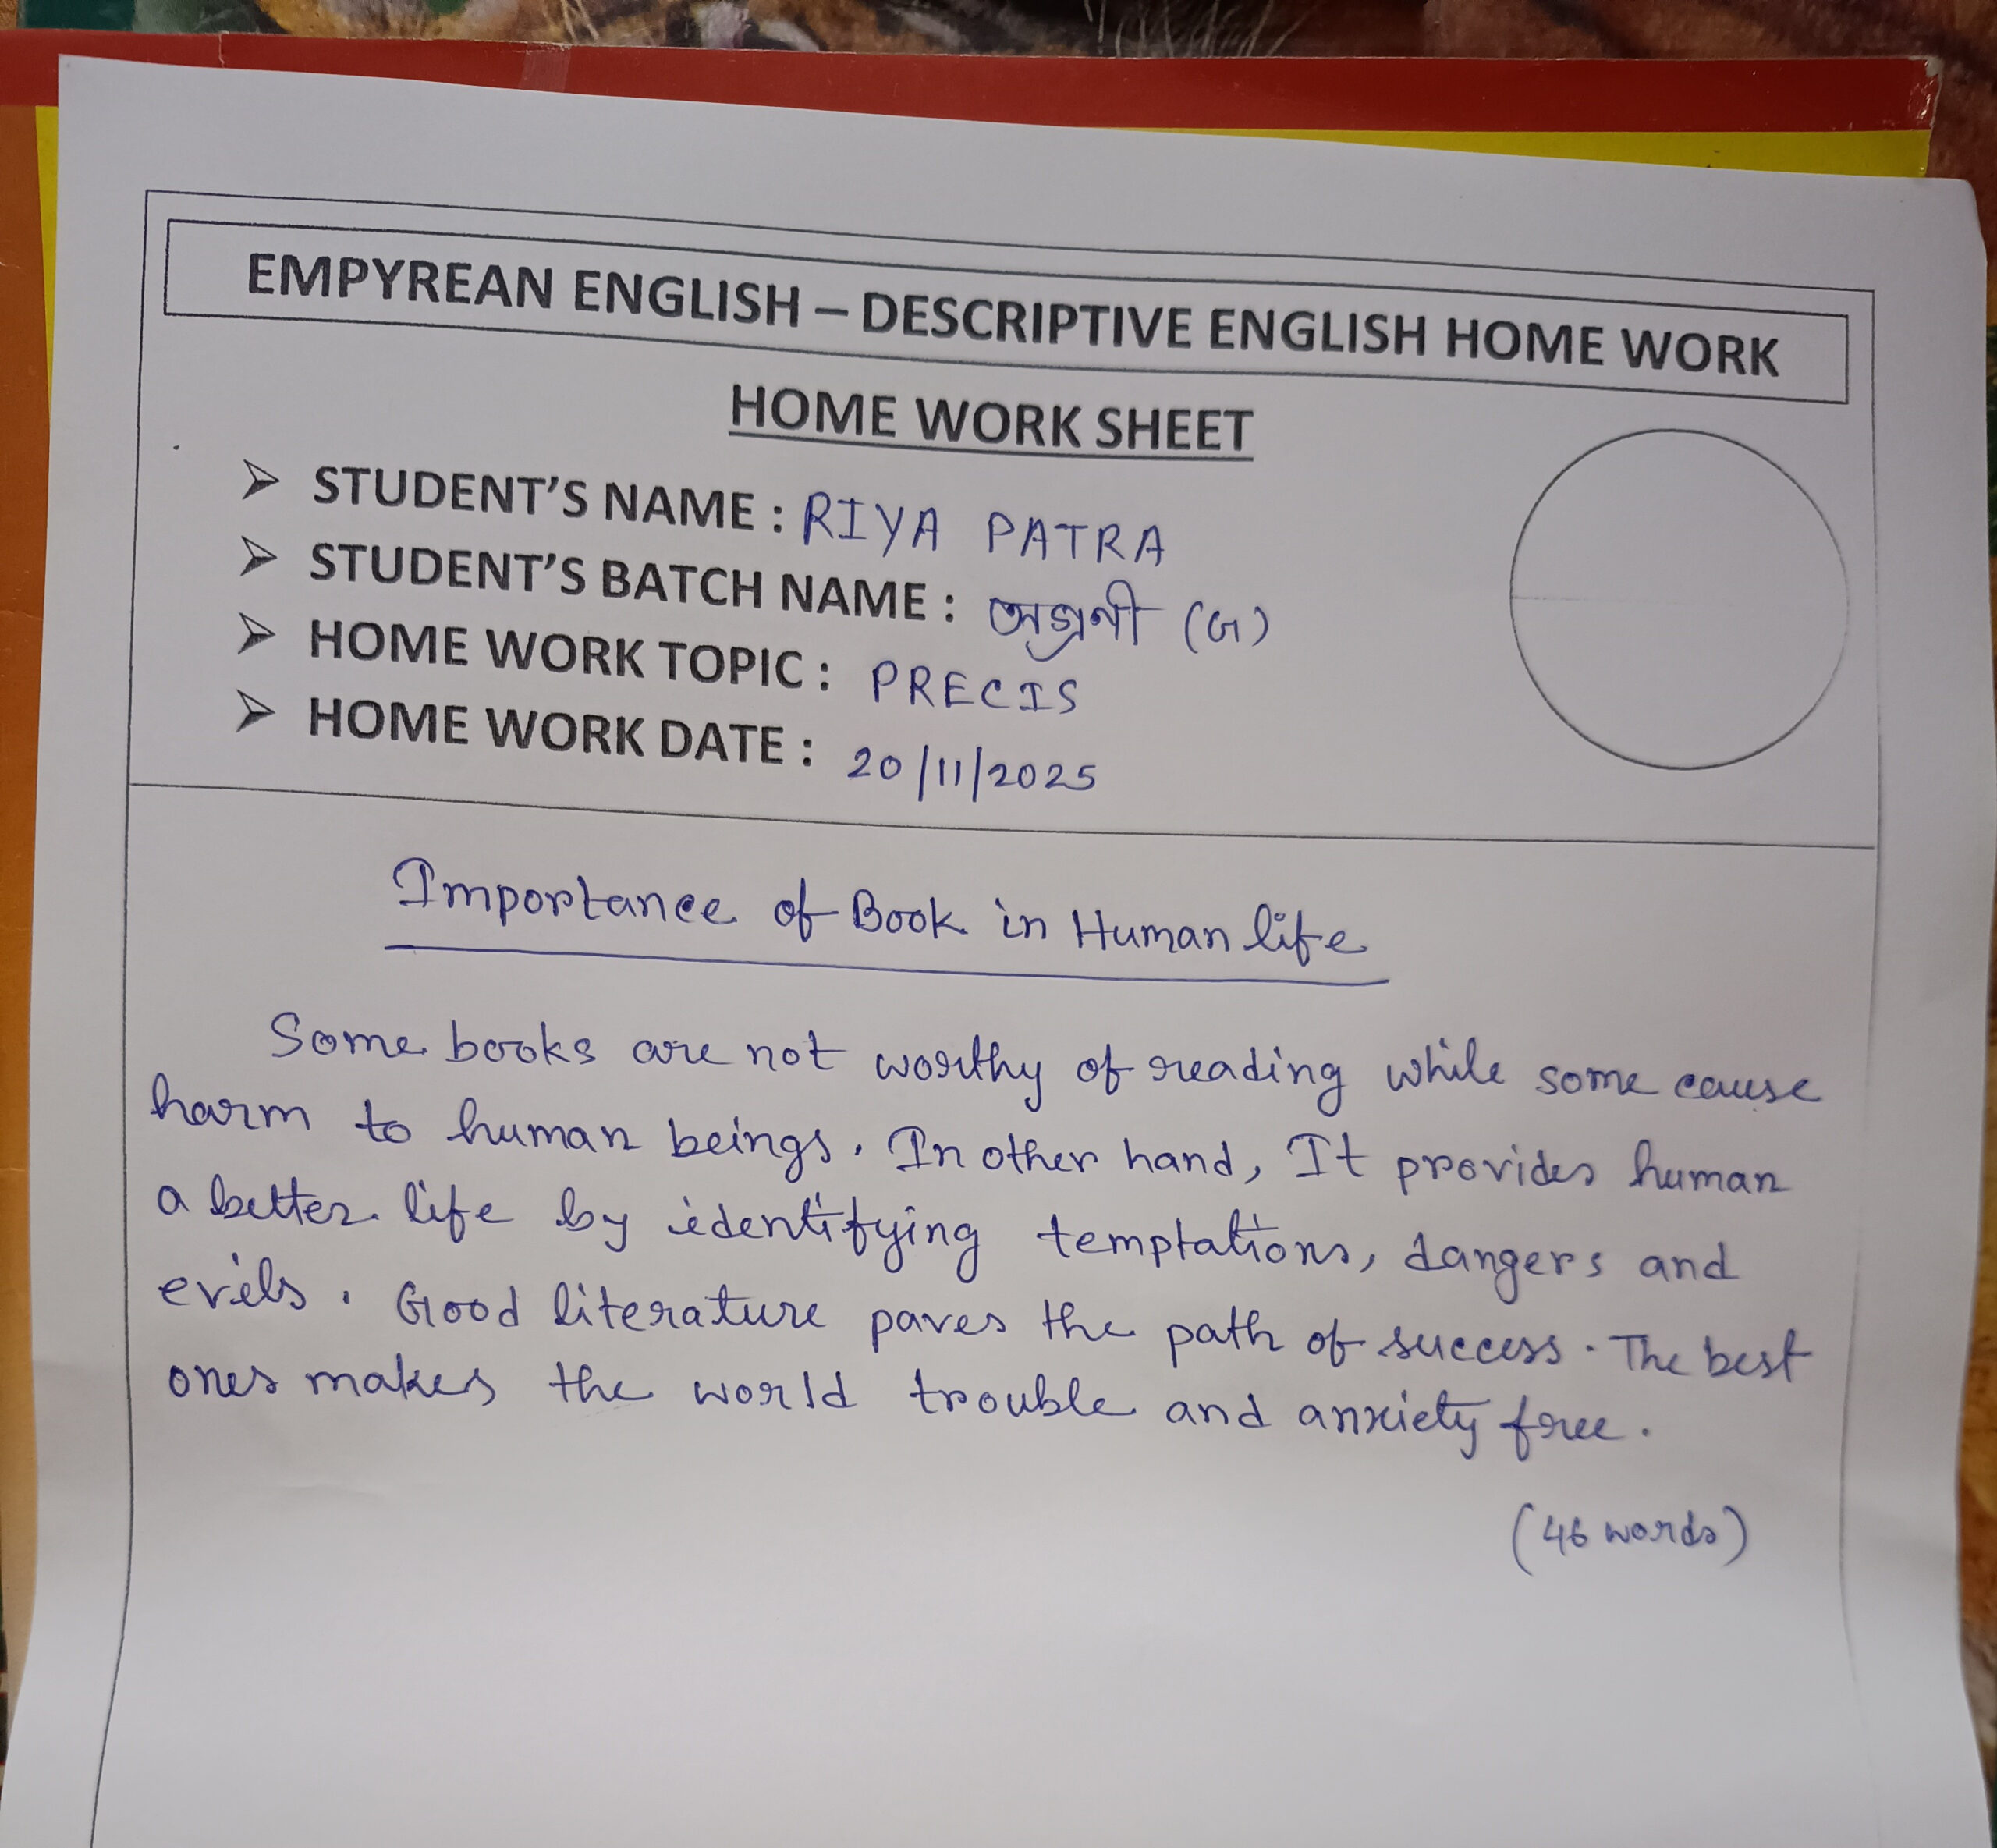 EMPYREAN ENGLISH – DESCRIPTIVE ENGLISH HOME WORK
HOME WORK SHEET
➢ STUDENT'S NAME : RIYA PATRA
➢ STUDENT'S BATCH NAME : অগ্রণী (G)
➢ HOME WORK TOPIC : PRECIS
➢ HOME WORK DATE : 20/11/2025
Importance of Book in Human life
Some books are not worthy of reading while some cause
harm to human beings. In other hand, It provides human
a better life by identifying temptations, dangers and
evils. Good literature paves the path of success. The best
ones makes the world trouble and anxiety free.
(46 words)